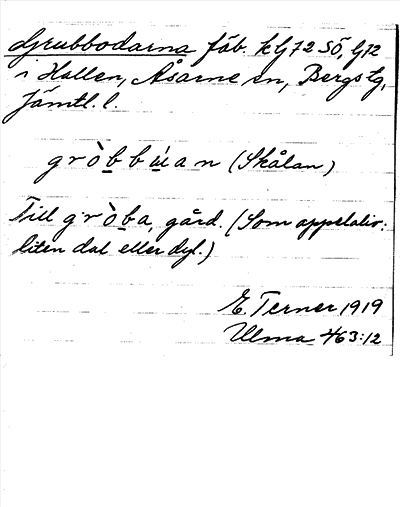 Grubbodarna fäb. kG 72 SÖ, G 72
i Hallen, Åsarne sn, Bergs tg,
Jämtl. l.
gròbbu̇an (Skålan)
Till gròba, gård. (Som appelativ:
liten dal eller dyl.)
E. Terner 1919
Ulma 463:12